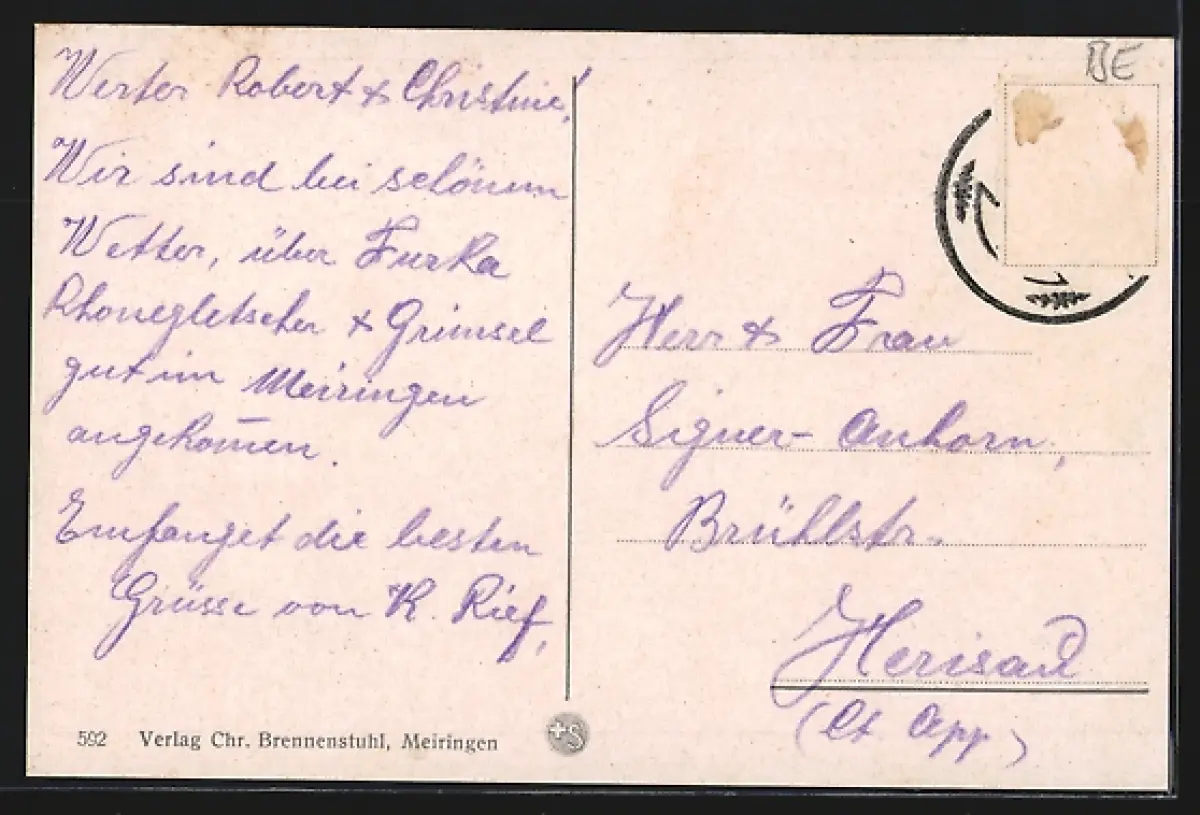 Werter Robert & Christine!
Wir sind bei schönem
Wetter, über Furka
Rhonegletscher & Grimsel
gut in Meiringen
angekom̄en.
Empfanget die besten
Grüsse von K. Rief,
592 Verlag Chr. Brennenstuhl, Meiringen
BE
Herr & Frau
Signer-Anhorn,
Brühlstr.
Herisau
(Ct App)
+S